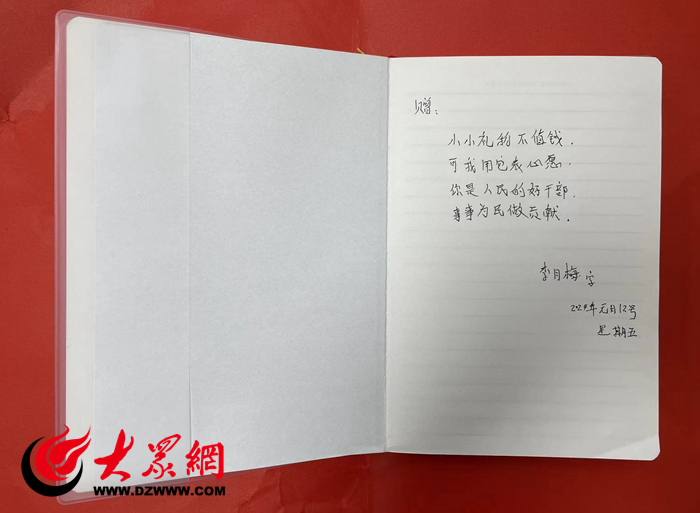 赠：
小小礼物不值钱，
可我用它表心愿．
你是人民的好干部，
事事为民做贡献．
李月梅 字
2024年元月12号
星期五
大眾網
WWW.DZWWW.COM